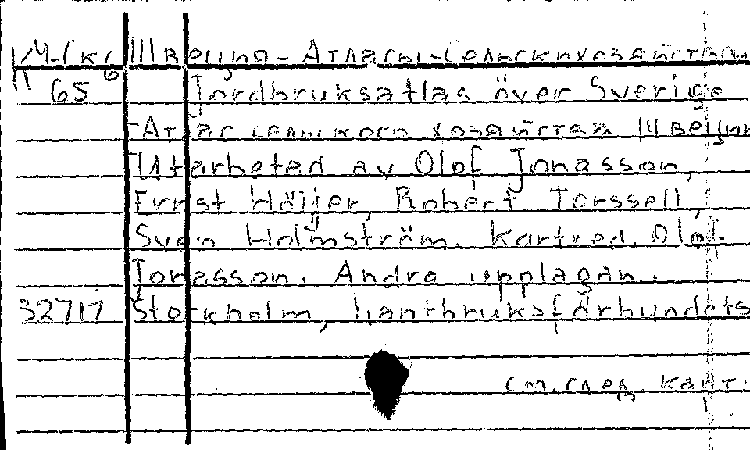 К4-Скб Швеция-Атласы-Сельскихозяйствен
65 Jordbruksatlas över Sverige
Атлас сельского хозяйства Швеции
Utarbetad av Olof Jonasson,
Ernst Höijer, Robert Torssell,
Sven Holmström. Kartred. Olof
Jonasson. Andra upplagan.
32717 Stockholm, Lantbruksförbundets
см. след. карт.